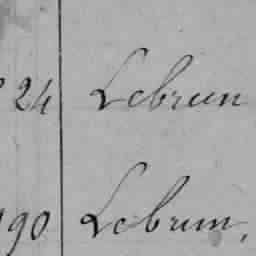 24 Lebrun
90 Lebrun,